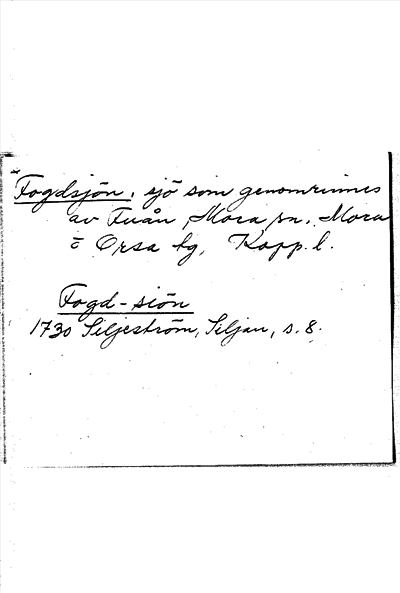 Fogdsjön, sjö som genomrinnes
av Fuån, Mora sn, Mora
o Orsa tg, Kopp. l.
Fogd-siön
1730 Siljeström, Siljan, s. 8.